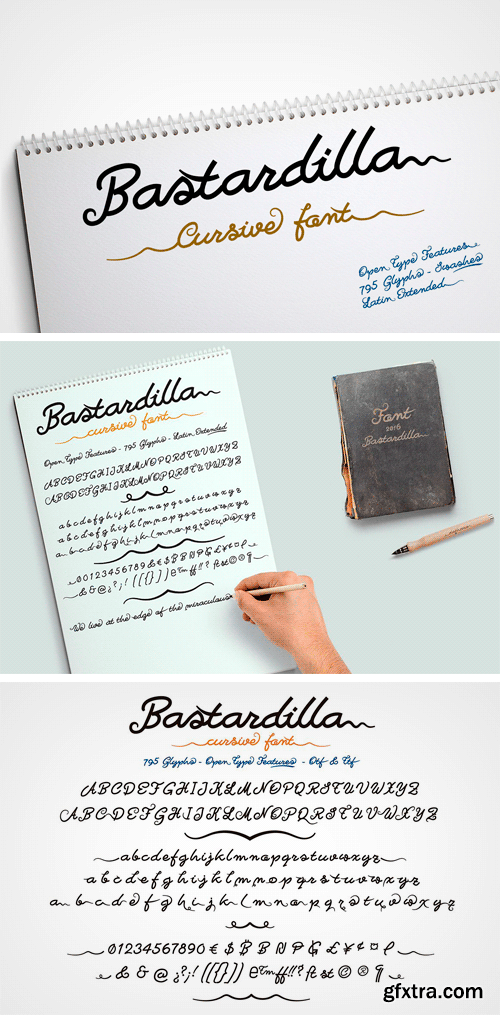 Bastardilla
Cursive font
Open Type Features
795 Glyphs - Swashes
Latin Extended
Bastardilla
cursive font
Open Type Features - 795 Glyphs - Latin Extended
ABCDEFGHIJKLMNOPQRSTUVWXYZ
ABCDEFGHIJKLMNOPQRSTUVWXYZ
abcdefghijklmnopqrstuvwxyz
abcdefghijklmnopqrstuvwxyz
abcdefghijklmnopqrstuvwxyz
01234567890
& @ ¿?¡!
We live at the edge of the miraculous
Font
2016
Bastardilla
Bastardilla
cursive font
795 Glyphs - Open Type Features - Otf & Ttf
ABCDEFGHIJKLMNOPQRSTUVWXYZ
ABCDEFGHIJKLMNOPQRSTUVWXYZ
abcdefghijklmnopqrstuvwxyz
abcdefghijklmnopqrstuvwxyz
abcdefghijklmnopqrstuvwxyz
01234567890 € $ ₿ B ₦ P ₲ £ ¥ ¢ ¤ ℓ
& & @ ¿?¡! (({} )) © ® ¶
gfxtra.com